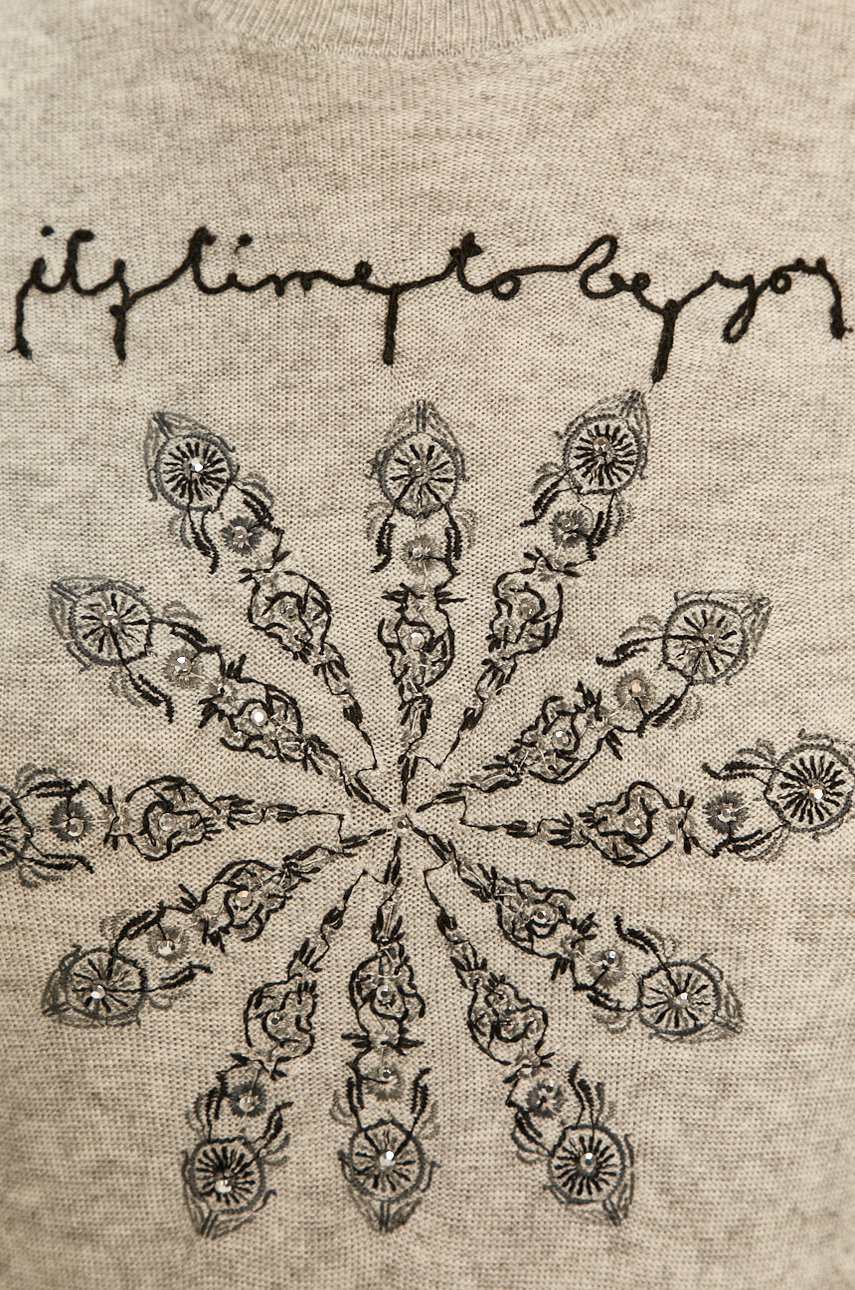 its time to be you